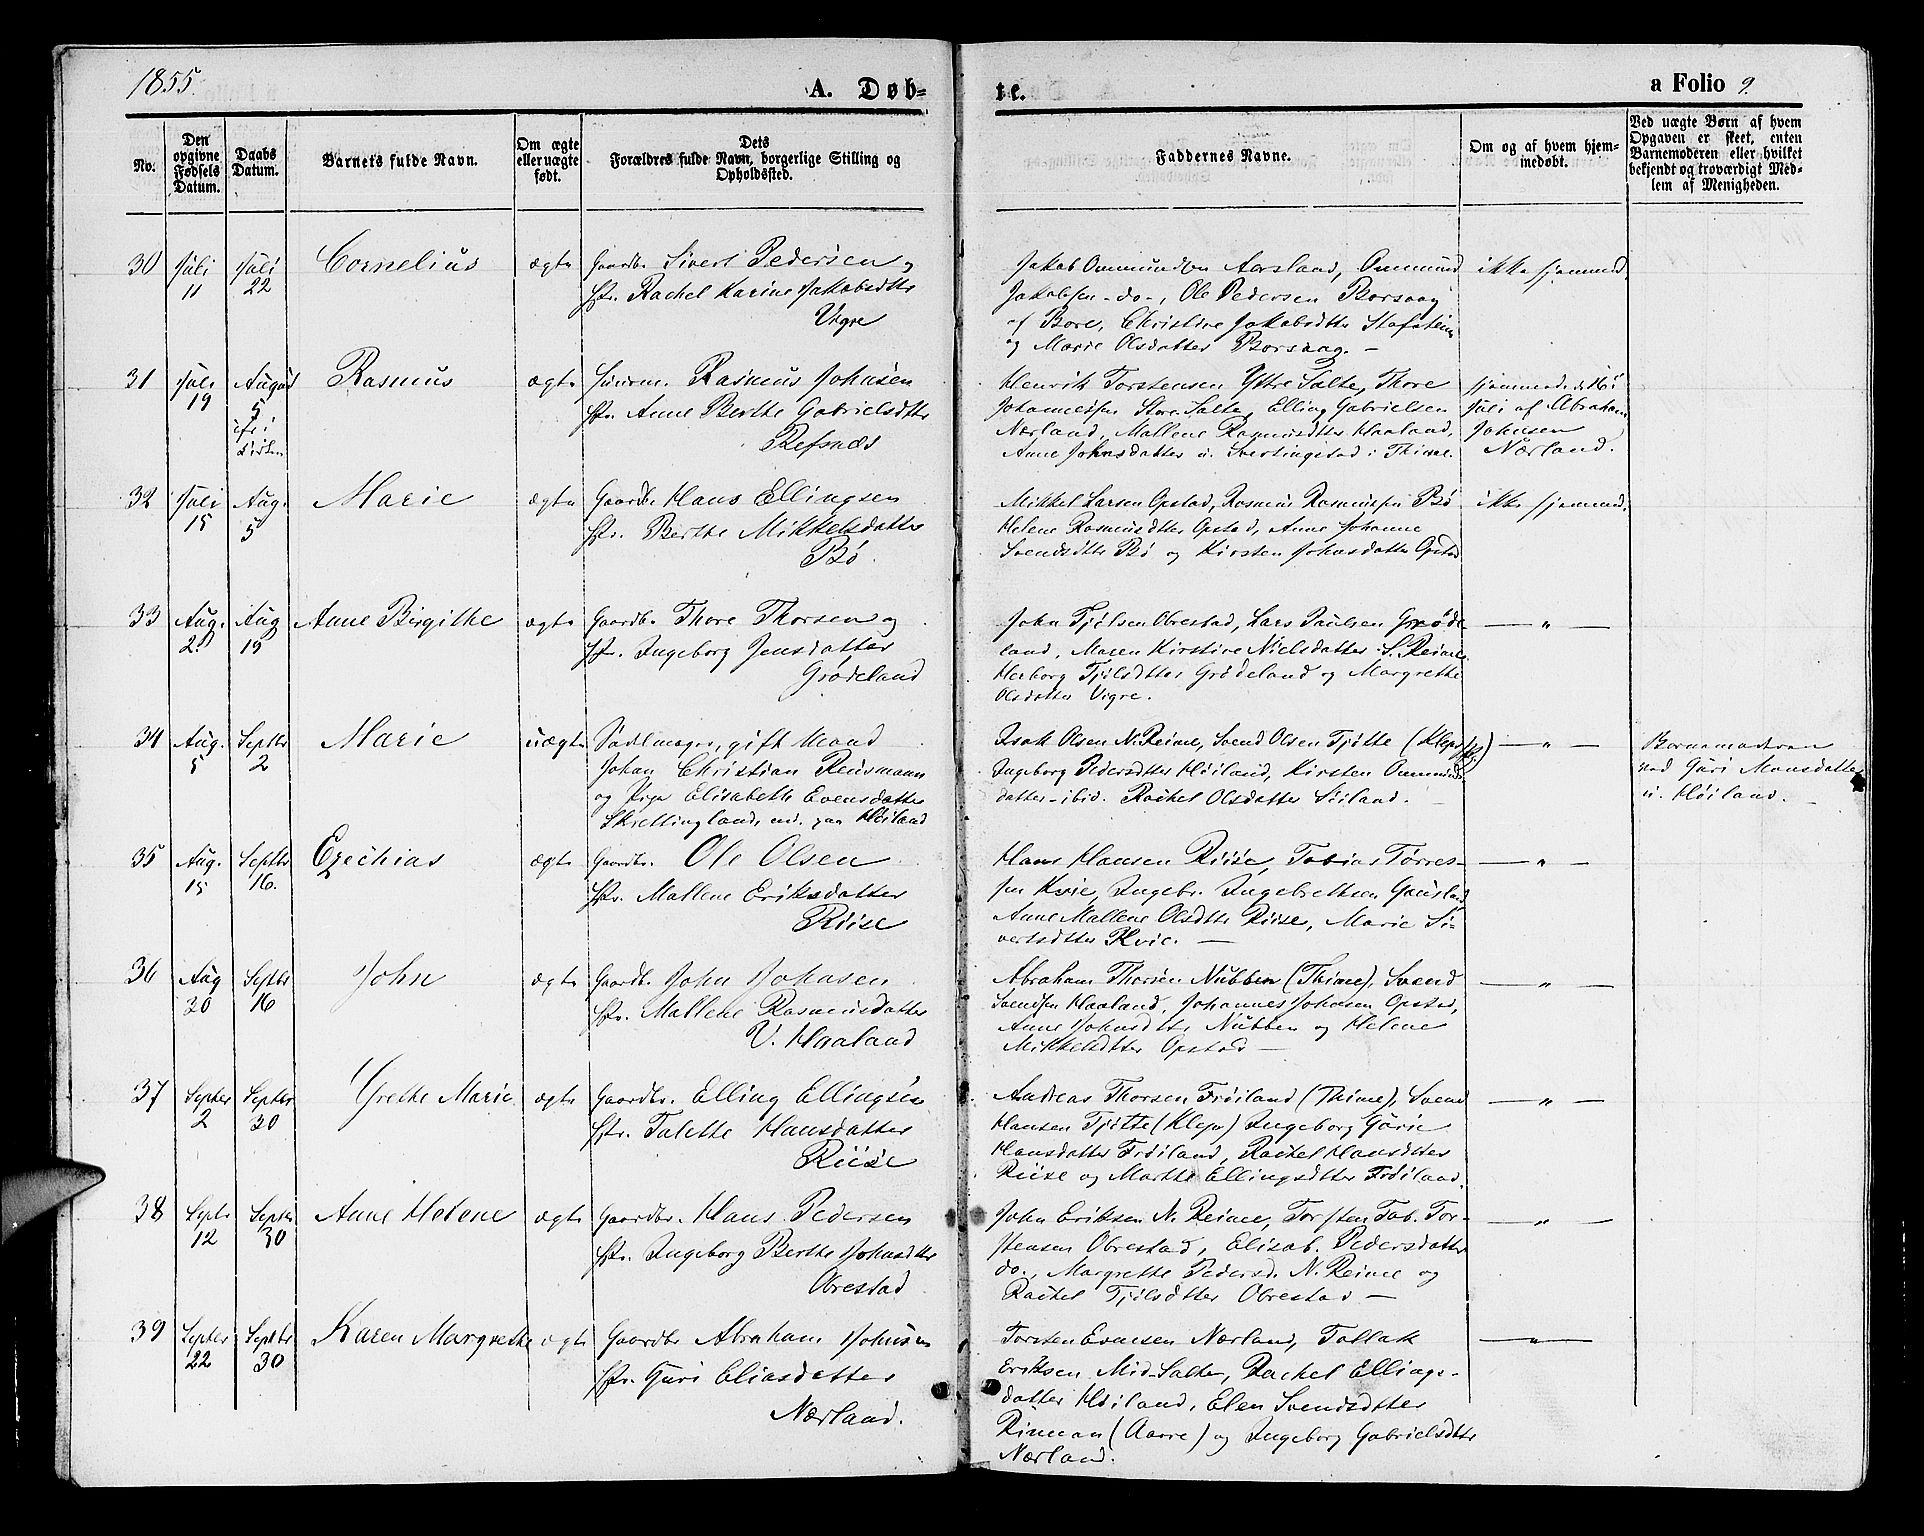 1855.
A. Døb=
te.
a Folio 9.
No.
Den opgivne Fødsels Datum.
Daabs Datum.
Barnets fulde Navn.
Om ægte eller uægte født.
Dets Forældres fulde Navn, borgerlige Stilling og Opholdssted.
Faddernes Navne.
Om og af hvem hjemmedøbt.
Ved uægte Børn af hvem Opgaven er skeet, enten Barnemoderen eller hvilket bekjendt og troværdigt Medlem af Menigheden.
30 Juli 11 Juli 22 Cornelius ægte Gaardbr. Sivert Pedersen og
Hstr. Rachel Karine Jakobsdtter
Vigre
Jakob Ommundsen Aarsland, Ommund
Jakobsen -do-, Ole Pedersen Borsaag
af Bore, Christine Jakobsdtter
og Marie Olsdatter Borsaag. —
ikke hjemmed.
31 Juli 19 August 5 Rasmus ægte Rasmus Johnsen
Hstr. Anne Berthe Gabrielsdtter
Refsnæs
Henrik Torstensen Yttre Salte, Thore
Johannessen Store Salte, Elling Gabrielsen
Nærland, Mallene Rasmusdtter Haaland,
Anne Johnsdatter u. Svertingstad i Thime.
Juli af Abraham
Johnsen
Nærland.
32 Juli 15 Aug. 5 Marie ægte Gaardbr. Hans Ellingsen
Hstr. Berthe Mikkelsdatter
Bø.
Mikkel Larsen Opstad, Rasmus Rasmussen Bø
Helene Rasmusdtter Opstad, Anne Johanne
Svendsdtter Bø og Kirsten Johnsdatter Opstad
ikke hjemmed.
33 Aug. 2 Aug 19 Anne Birgithe ægte Gaardbr. Thore Thorsen og
Hstr. Ingeborg Jensdatter
Grødeland
John Tjølsen Obrestad, Lars Paulsen Grøde-
land, Maren Kirstine Nielsdatter S. Reime
Herborg Tjølsdtter Grødeland og Margrethe
Olsdatter Vigre.
— " —
34 Aug. 5 Septbr 2 Marie uægte Sadlmager, gift Mand
Johan Christian Reusmann
og Pige Elisabeth Evensdatter
Skrettingland, paa Høiland
Isak Olsen N. Reime, Svend Olsen Tjøtte (Klep)
Ingeborg Pedersdtter Høiland, Kirsten Ommunds-
datter ibid. Rachel Olsdatter Siiland.
— " —
Barnemoderen
ved Guri Monsdatter
u. Høiland.
35 Aug. 15 Septbr 16. Ezechias ægte Gaardbr. Ole Olsen
Hstr. Mallene Eriksdatter
Riise
Hans Hansen Riise, Tobias Tørres-
sen Kvie, Ingebr. Ingebrethsen Gauslad
Anne Mallene Olsdtter Riise, Marie Si-
vertsdtter Kvie. —
— " —
36 Aug 20 Septbr 16 John ægte Gaardb. John Johnsen
Hstr. Mallene Rasmusdatter
V. Haaland
Abraham Thorsen Nubben (Thime), Svend
Svendsen Haaland, Johannes Johnsen Opstad,
Anne Johnsdtter Nubben og Helene
Mikkelsdtter Opstad —
— " —
37 Septbr 2 Septbr 30 Grethe Marie ægte Gaardbr. Elling Ellingsen
Hstr. Talette Hansdatter
Riise
Andreas Thorsen Frøiland (Thime), Svend
Hansen Tjøtte (Klep) Ingeborg Gurie
Hansdatter Frøiland, Rachel Hansdtter
Riise og Marthe Ellingsdtter Frøiland.
— " —
38 Septr 12 Septr 30 Anne Helene ægte Gaardbr. Hans Pedersen
Hstr. Ingeborg Berthe Johnsdtter
Obrestad
John Eriksen N. Reime, Torsten Tob. Tor-
stensen Obrestad, Elisab. Pedersdatter
do., Margrethe Pedersd. N. Reime og
Rachel Tjølsdtter Obrestad —
— " —
39 Septbr 22 Septbr 30 Karen Margrethe ægte Gaardbr Abraham Johnsen
Hstr. Guri Eliasdatter
Nærland.
Torsten Evensen Nærland, Tollak
Eriksen Mid-Salte, Rachel Ellings-
datter Høiland, Elen Svendsdtter
Riman (Aarre) og Ingeborg Gabrielsdtter
Nærland.
— " —